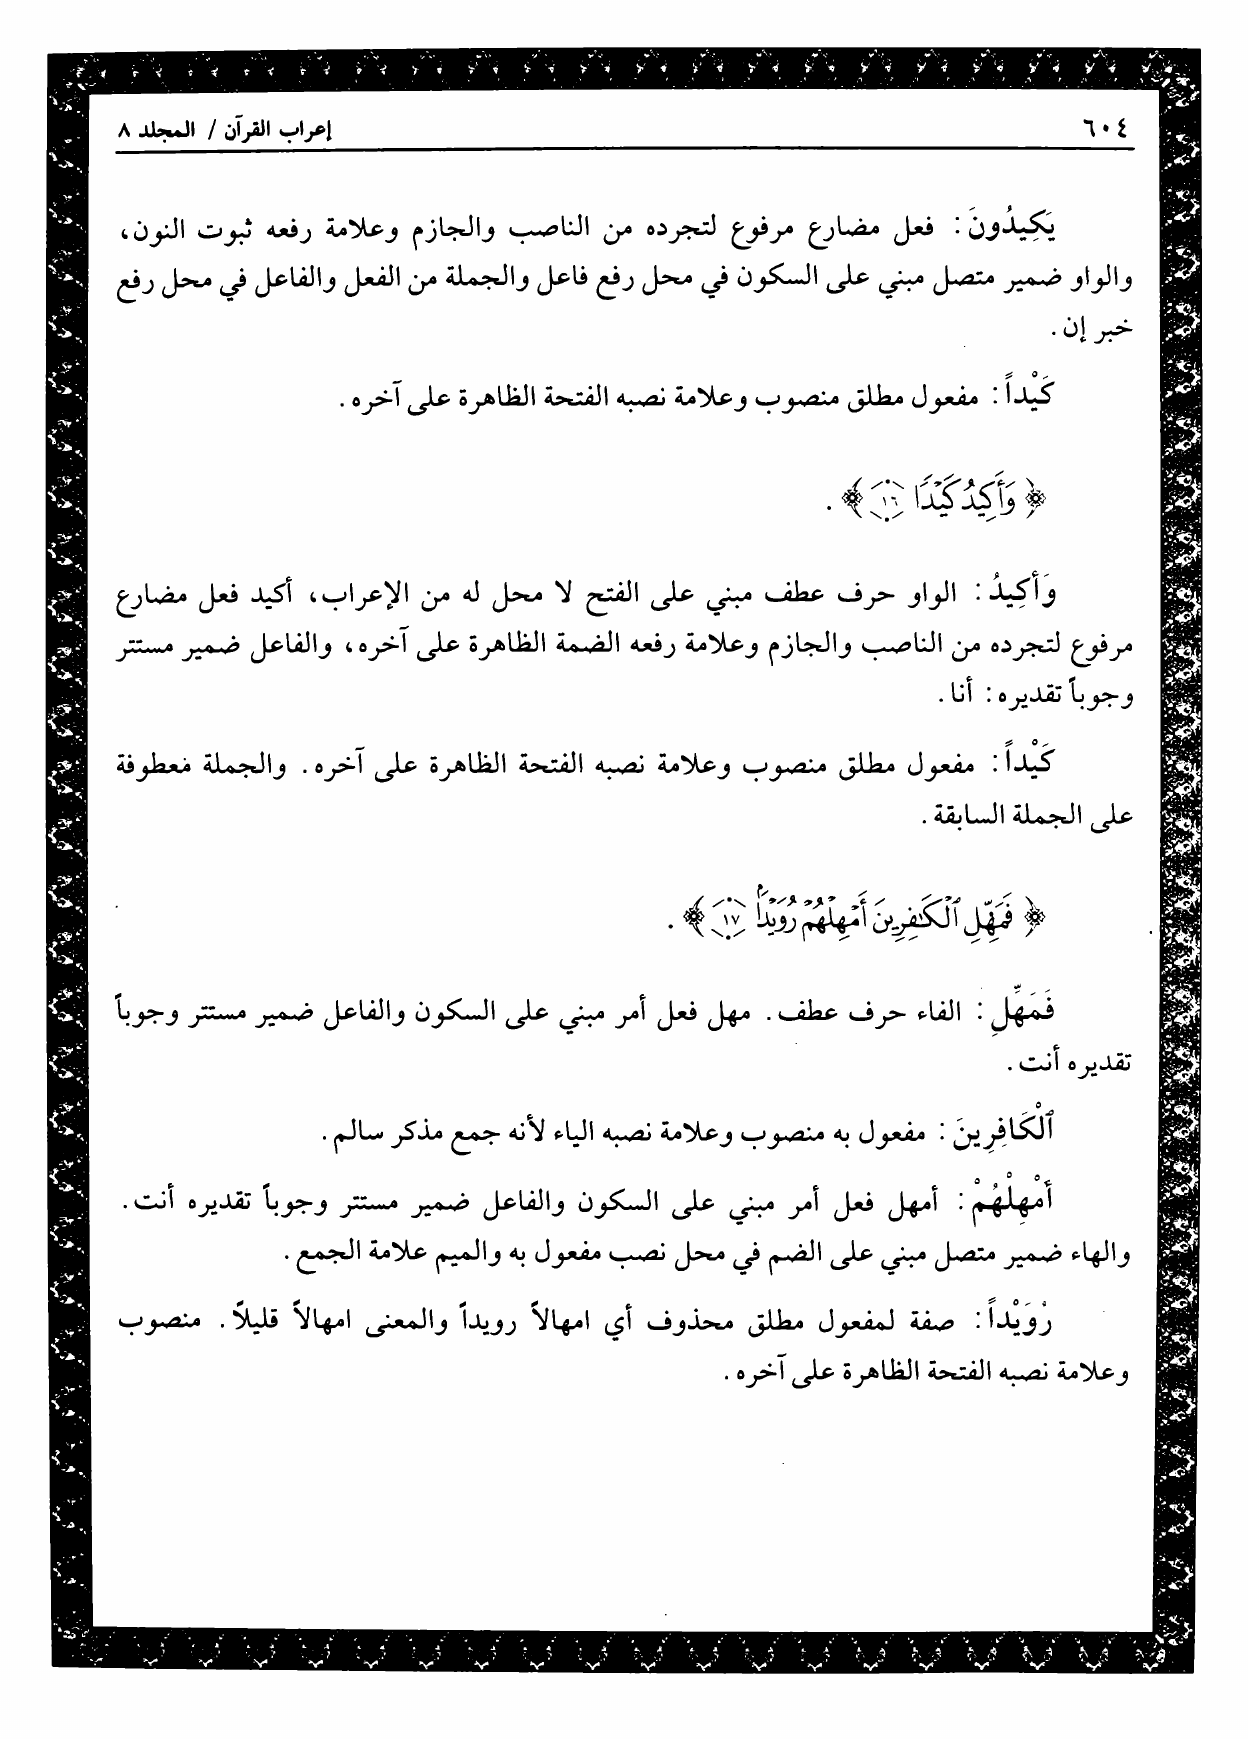 ٦٠٤
إعراب القرآن / المجلد ٨
يَكِيدُونَ: فعل مضارع مرفوع لتجرده من الناصب والجازم وعلامة رفعه ثبوت النون،
والواو ضمير متصل مبني على السكون في محل رفع فاعل والجملة من الفعل والفاعل في محل رفع
خبر إن.
كَيْداً: مفعول مطلق منصوب وعلامة نصبه الفتحة الظاهرة على آخره.
﴿وَأَكِيدُ كَيْدًا ١٦﴾.
وَأَكِيدُ: الواو حرف عطف مبني على الفتح لا محل له من الإعراب، أكيد فعل مضارع
مرفوع لتجرده من الناصب والجازم وعلامة رفعه الضمة الظاهرة على آخره، والفاعل ضمير مستتر
وجوباً تقديره: أنا.
كَيْداً: مفعول مطلق منصوب وعلامة نصبه الفتحة الظاهرة على آخره. والجملة معطوفة
على الجملة السابقة.
﴿فَمَهِّلِ ٱلْكَٰفِرِينَ أَمْهِلْهُمْ رُوَيْدًۢا ١٧﴾.
فَمَهِّلِ: الفاء حرف عطف. مهل فعل أمر مبني على السكون والفاعل ضمير مستتر وجوباً
تقديره أنت.
ٱلْكَافِرِينَ: مفعول به منصوب وعلامة نصبه الياء لأنه جمع مذكر سالم.
أَمْهِلْهُمْ: أمهل فعل أمر مبني على السكون والفاعل ضمير مستتر وجوباً تقديره أنت.
والهاء ضمير متصل مبني على الضم في محل نصب مفعول به والميم علامة الجمع.
رُوَيْداً: صفة لمفعول مطلق محذوف أي امهالاً رويداً والمعنى امهالاً قليلاً. منصوب
وعلامة نصبه الفتحة الظاهرة على آخره.